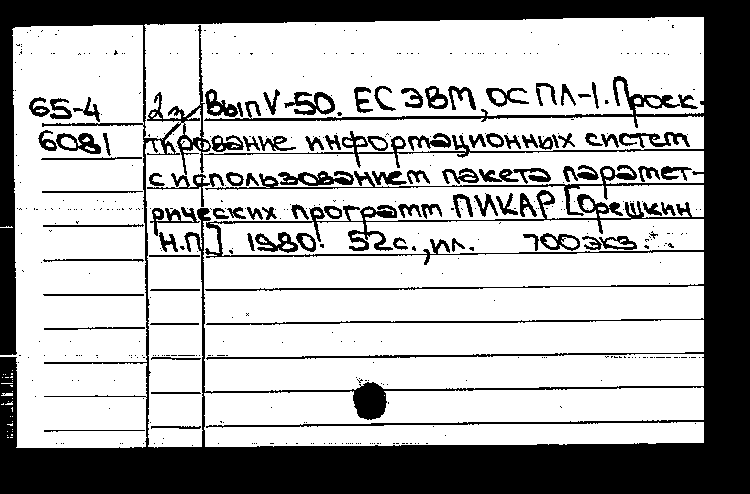 65-4 2л Вып V-50. ЕС ЭВМ, ОС ПЛ-1. Проек-
6081 тирование информационных систем
с использованием пакета парамет-
рических программ ПИКАР [Орешкин
Н.П.]. 1980. 52с., ил. 700 экз.